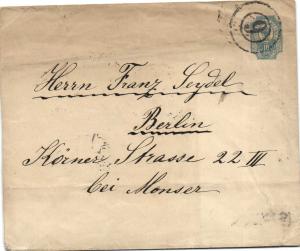 Herrn Franz Seydel
Berlin
Körner Strasse 22 III
bei Monser